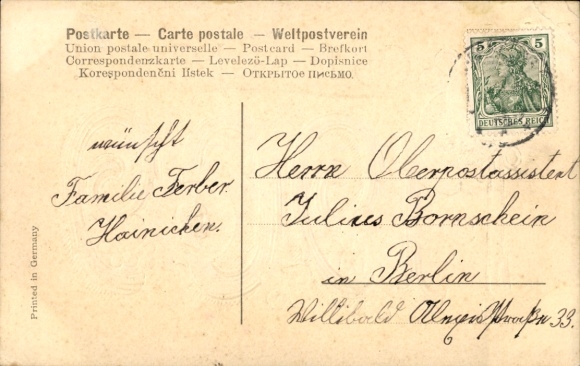 Postkarte — Carte postale — Weltpostverein
Union postale universelle — Postcard — Brefkort
Correspondenzkarte — Levelező-Lap — Dopisnice
Korespondenční lístek — ОТКРЫТОЕ ПИСЬМО.
5 5
DEUTSCHES REICH
wünscht
Familie Ferber.
Hainichen.
Herrn Oberpostassistent
Julius Bornschein
in Berlin
Willibald Alexisstraße 33.
Printed in Germany